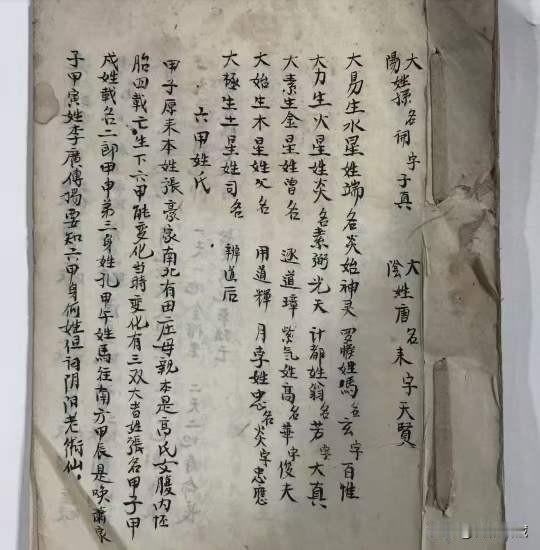 大陽姓孫名詞字子真 大陰姓唐名末字天賢
大易生水星姓端名炎始神灵 羅睺姓馮名玄字百惟
大力生火星姓炎名素弼光天 计都姓翁名芳字大真
大素生金星姓曾名逐道璋 紫气姓高名華字俊夫
大始生木星姓 名用道輝 月孛姓忠名炎字忠應
大極生土星姓司名辦道后
六甲姓氏
甲子原耒本姓張豪家南北有田庄母親本是高氏女腹内怀
胎四載亡生下六甲能变化当時变化有三双大者姓張名甲子甲
戍姓载名二郎甲申弟三身姓孔甲午姓馬往南方甲辰是唤蕭家
子甲寅姓李廣傳揚要知六甲身何姓但问阴阳老術仙